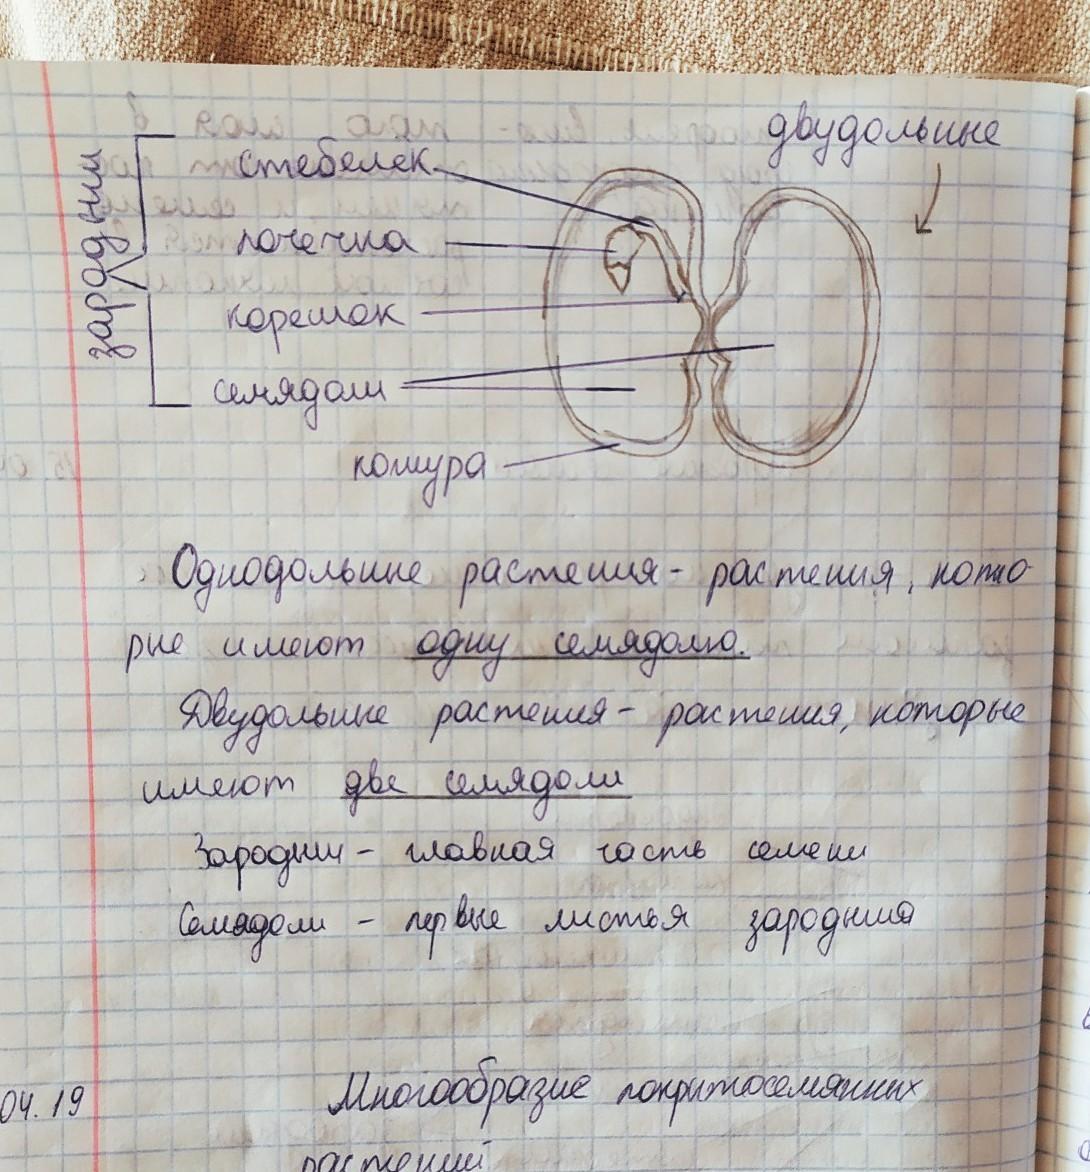 двудольные
стебелек
почечка
зародыш
корешок
семядоли
кожура
Однодольные растения - растения, кото-
рые имеют одну семядолю.
Двудольные растения - растения, которые
имеют две семядоли
Зародыш - главная часть семени
Семядоли - первые листья зародыша
04.19
Многообразие покрытосемянных
растений